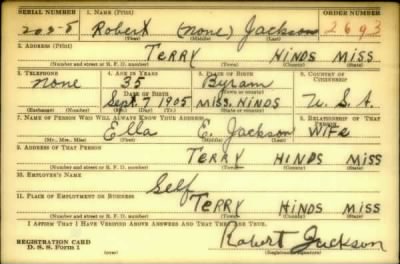 SERIAL NUMBER 1. NAME (Print) ORDER NUMBER
Robert (none) Jackson 2693
(First) (Middle) (Last)
2. ADDRESS (Print)
TERRY HINDS MISS
(Number and street or R. F. D. number) (Town) (County) (State)
3. TELEPHONE 4. AGE IN YEARS 5. PLACE OF BIRTH 6. COUNTRY OF
none 35 Byram CITIZENSHIP
DATE OF BIRTH (Town or county)
Sept. 7 1905 MISS. HINDS U. S. A.
(Exchange) (Number) (Mo.) (Day) (Yr.) (State or country)
7. NAME OF PERSON WHO WILL ALWAYS KNOW YOUR ADDRESS 8. RELATIONSHIP OF THAT
Ella E. Jackson WIFE
(Mr., Mrs., Miss) (First) (Middle) (Last)
9. ADDRESS OF THAT PERSON
TERRY HINDS MISS
(Number and street or R. F. D. number) (Town) (County) (State)
10. EMPLOYER'S NAME
Self
11. PLACE OF EMPLOYMENT OR BUSINESS
TERRY HINDS MISS
(Number and street or R. F. D. number) (Town) (County) (State)
I AFFIRM THAT I HAVE VERIFIED ABOVE ANSWERS AND THAT THEY ARE TRUE.
REGISTRATION CARD
D. S. S. Form 1
Robert Jackson
(Registrant's signature)